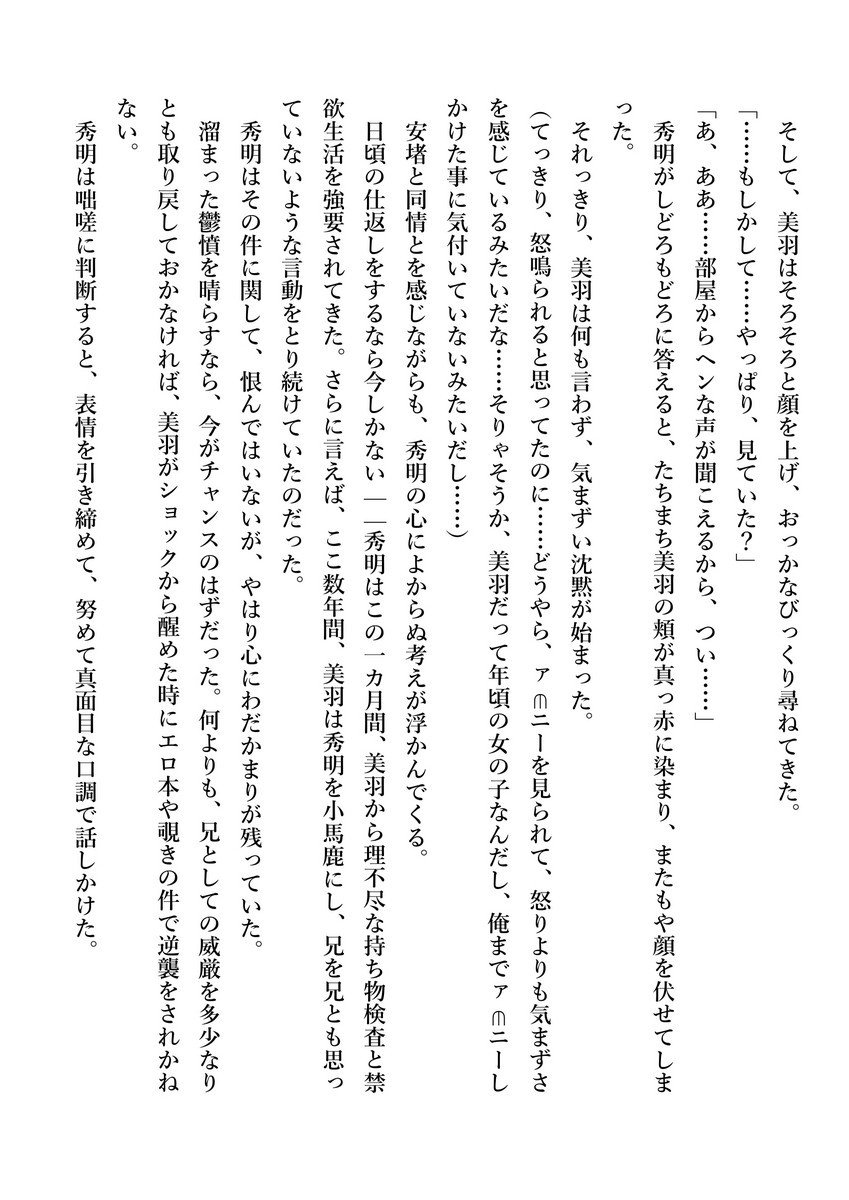 そして、美羽はそろそろと顔を上げ、おっかなびっくり尋ねてきた。
「……もしかして……やっぱり、見ていた？」
「あ、ああ……部屋からヘンな声が聞こえるから、つい……」
秀明がしどろもどろに答えると、たちまち美羽の頬が真っ赤に染まり、またもや顔を伏せてしま
った。
それっきり、美羽は何も言わず、気まずい沈黙が始まった。
（てっきり、怒鳴られると思ってたのに……どうやら、ァ⋒ニーを見られて、怒りよりも気まずさ
を感じているみたいだな……そりゃそうか、美羽だって年頃の女の子なんだし、俺までァ⋒ニーし
かけた事に気付いていないみたいだし……）
安堵と同情とを感じながらも、秀明の心によからぬ考えが浮かんでくる。
日頃の仕返しをするなら今しかない――秀明はこの一カ月間、美羽から理不尽な持ち物検査と禁
欲生活を強要されてきた。さらに言えば、ここ数年間、美羽は秀明を小馬鹿にし、兄を兄とも思っ
ていないような言動をとり続けていたのだった。
秀明はその件に関して、恨んではいないが、やはり心にわだかまりが残っていた。
溜まった鬱憤を晴らすなら、今がチャンスのはずだった。何よりも、兄としての威厳を多少なり
とも取り戻しておかなければ、美羽がショックから醒めた時にエロ本や覗きの件で逆襲をされかね
ない。
秀明は咄嗟に判断すると、表情を引き締めて、努めて真面目な口調で話しかけた。